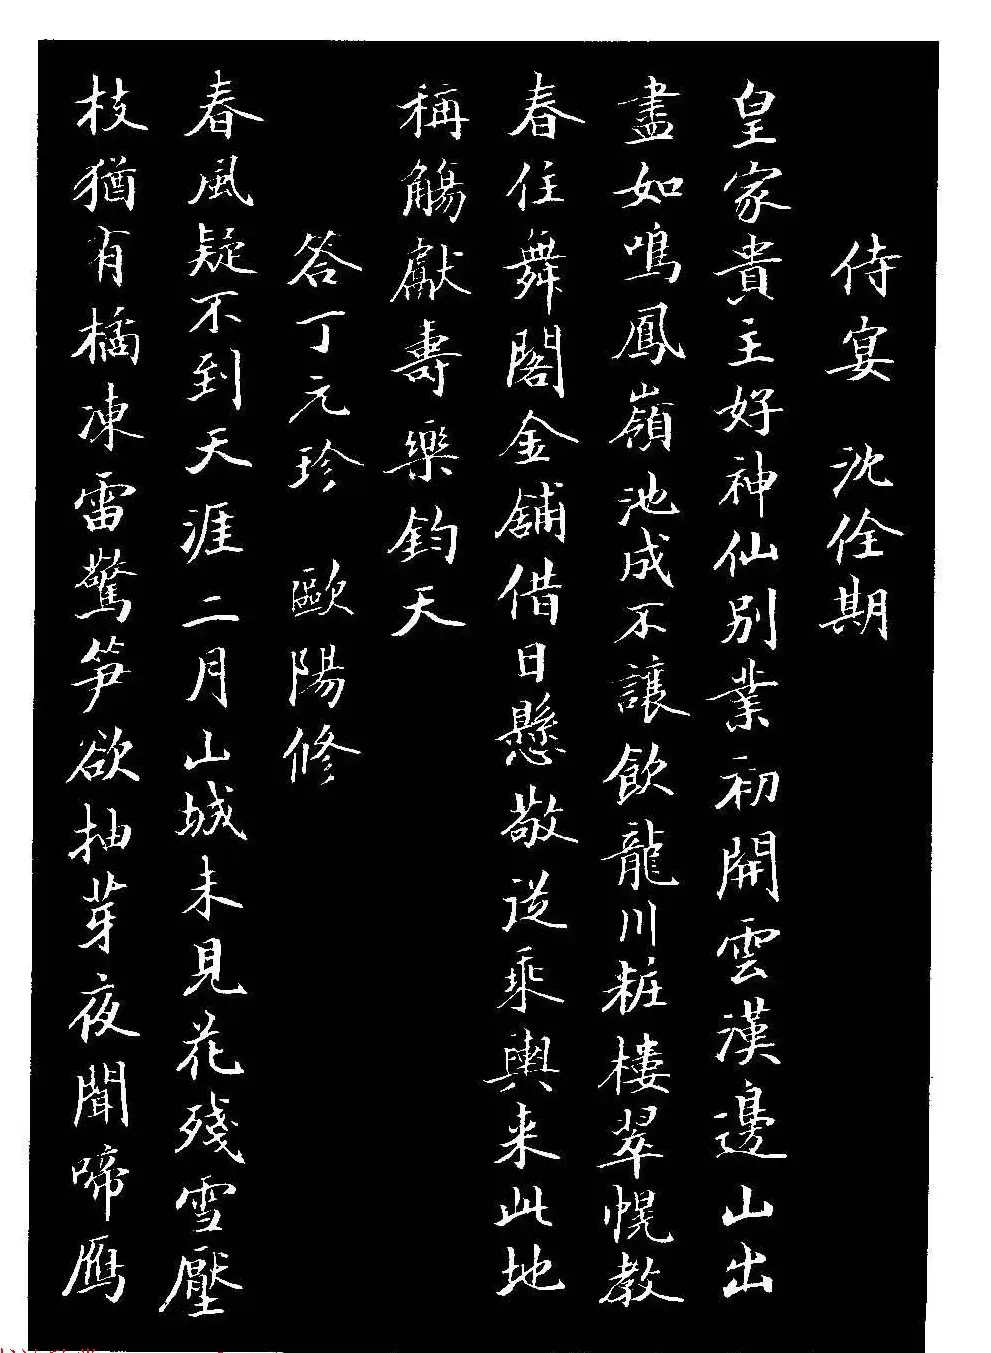 侍宴 沈佺期
皇家貴主好神仙別業初開雲漢邊山出
盡如鳴鳳嶺池成不讓飲龍川粧樓翠幌教
春住舞閣金鋪借日懸敬從乘輿来此地
稱觴獻壽樂鈞天
答丁元珍 歐陽修
春風疑不到天涯二月山城未見花殘雪壓
枝猶有橘凍雷驚笋欲抽芽夜聞啼鴈